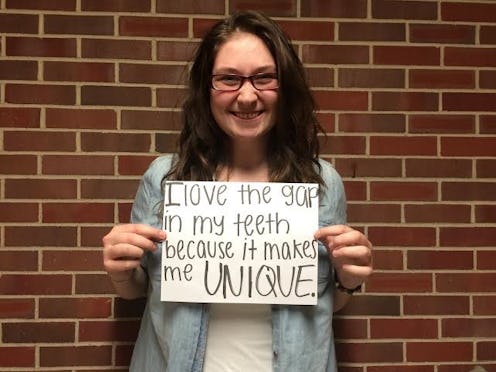 I love the gap
in my teeth
because it makes
me UNIQUE.